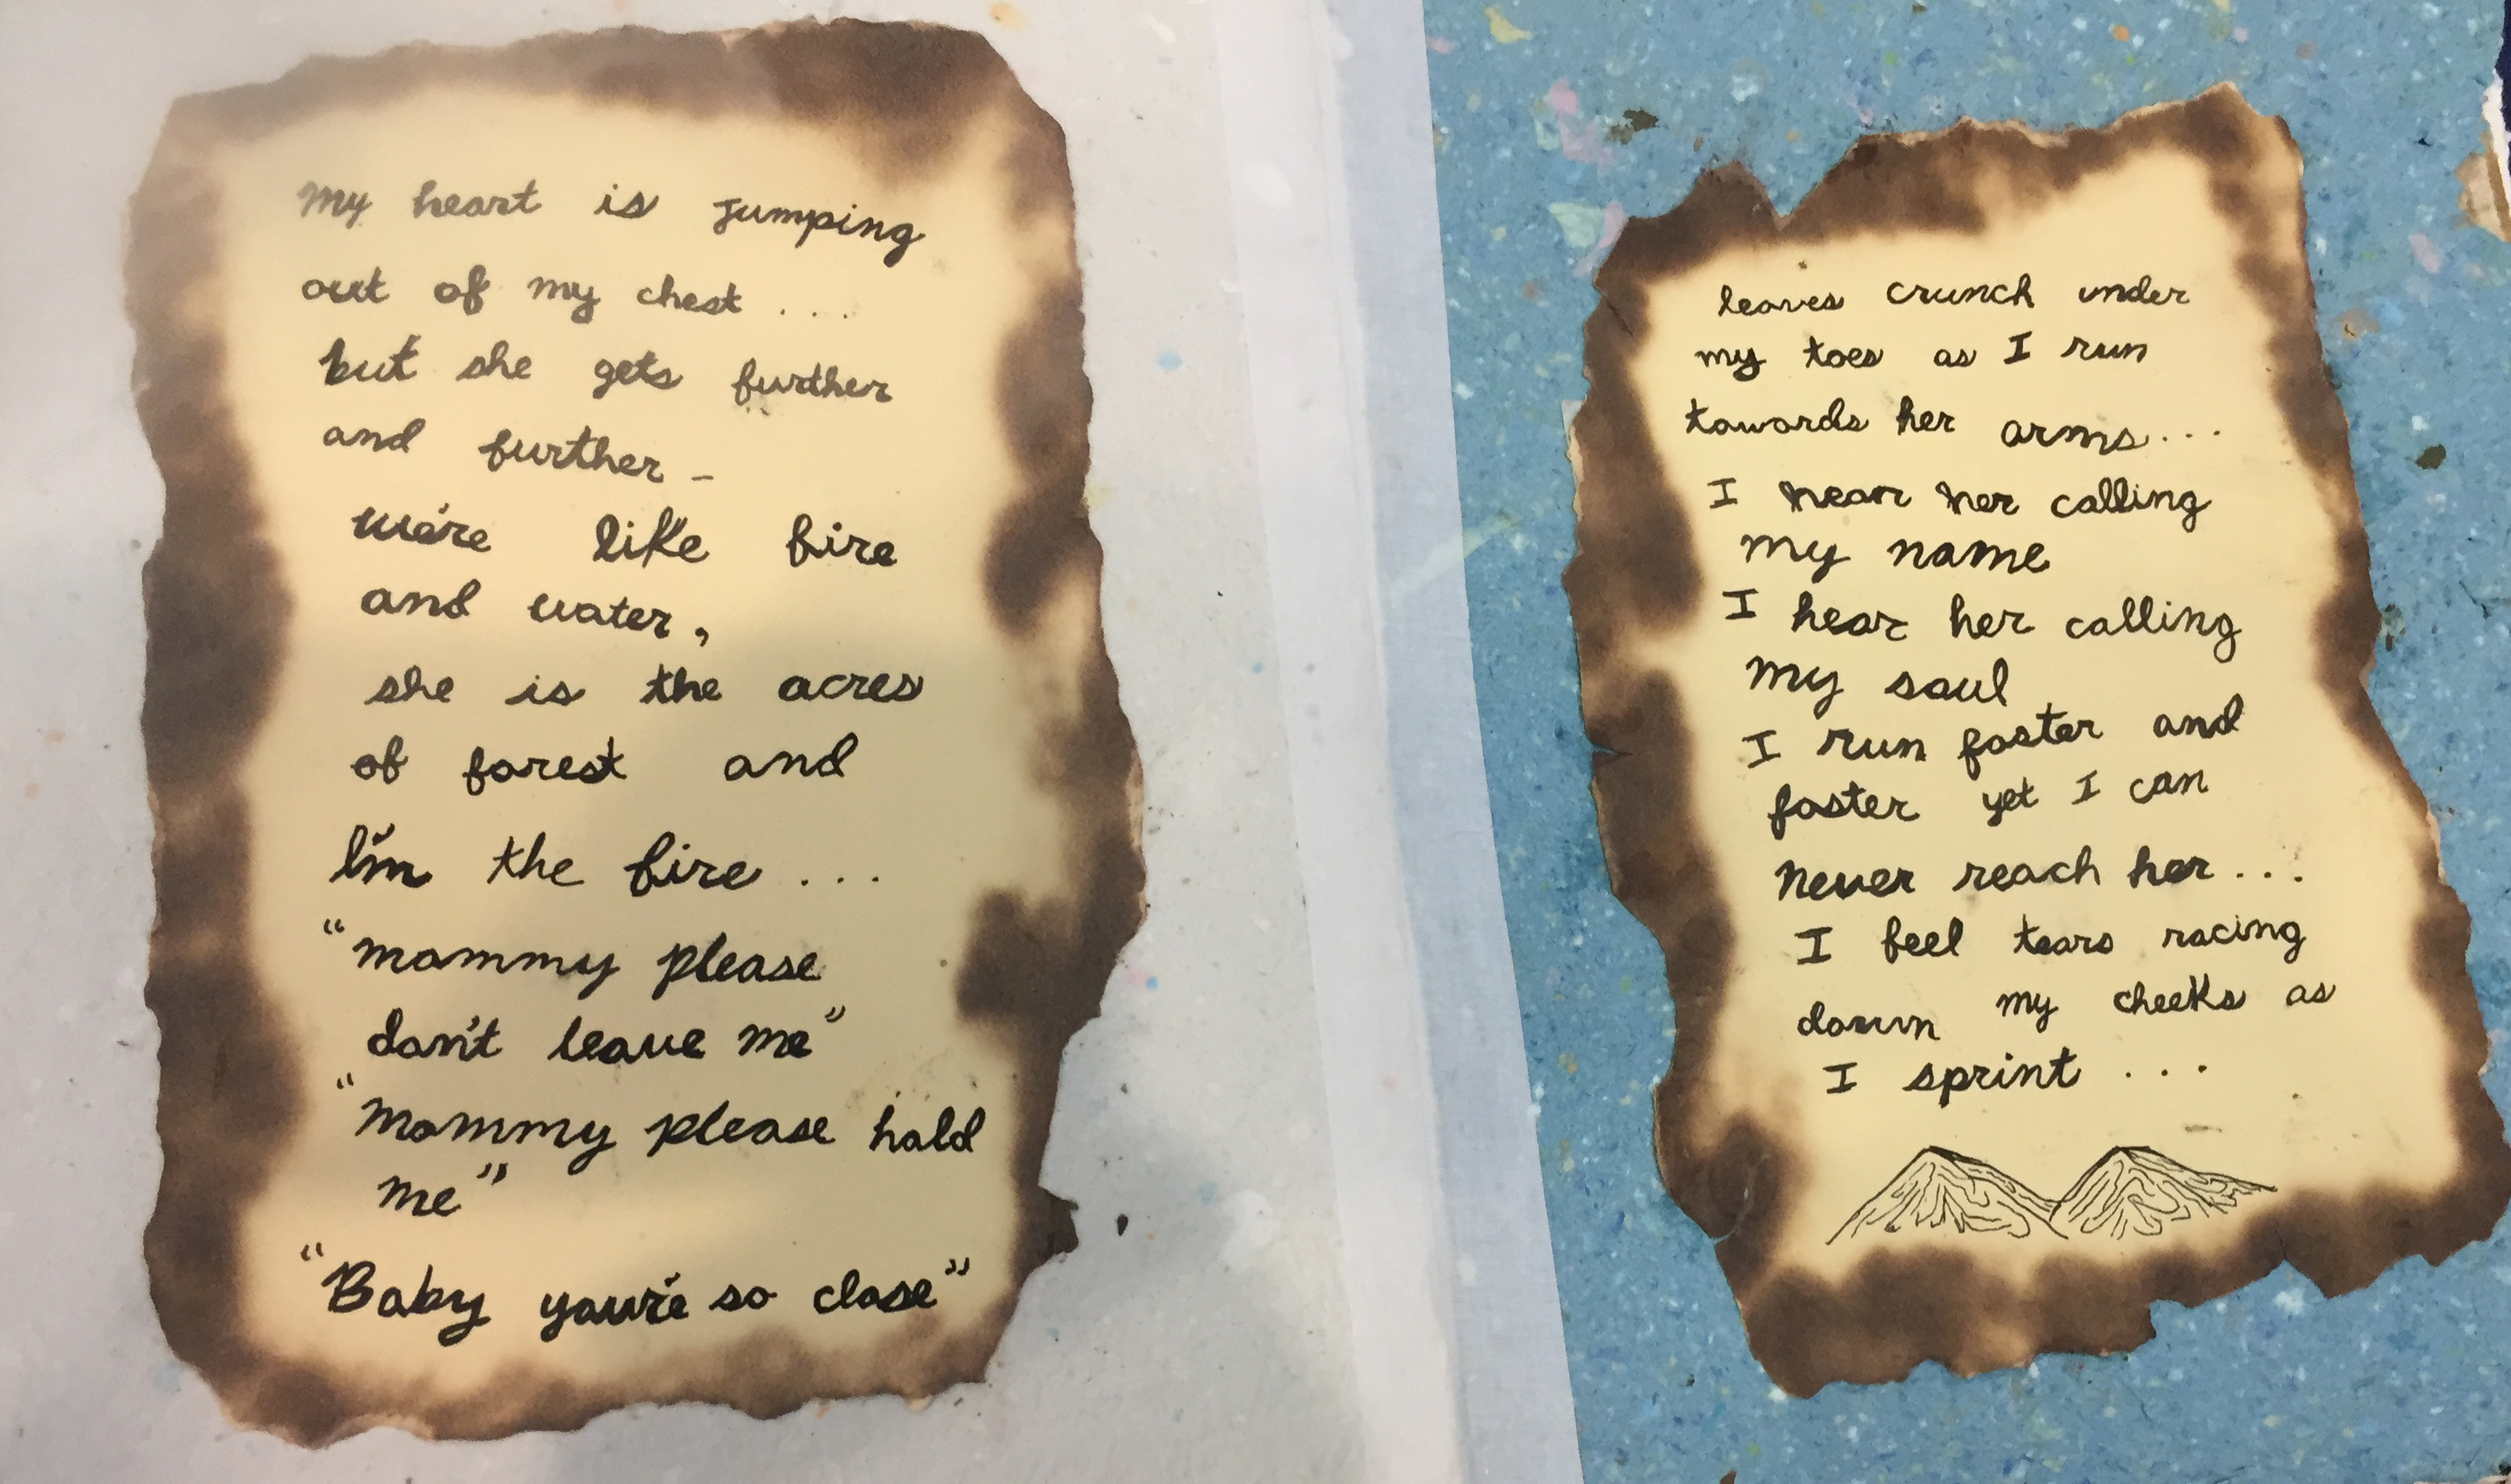 My heart is jumping
out of my chest ...
but she gets further
and further -
we're like fire
and water,
she is the acres
of forest and
I'm the fire ...
"mommy please
don't leave me"
"Mommy please hold
me"
"Baby you're so close"
leaves crunch under
my toes as I run
towards her arms...
I hear her calling
my name
I hear her calling
my soul
I run faster and
faster yet I can
never reach her...
I feel tears racing
down my cheeks as
I sprint ...